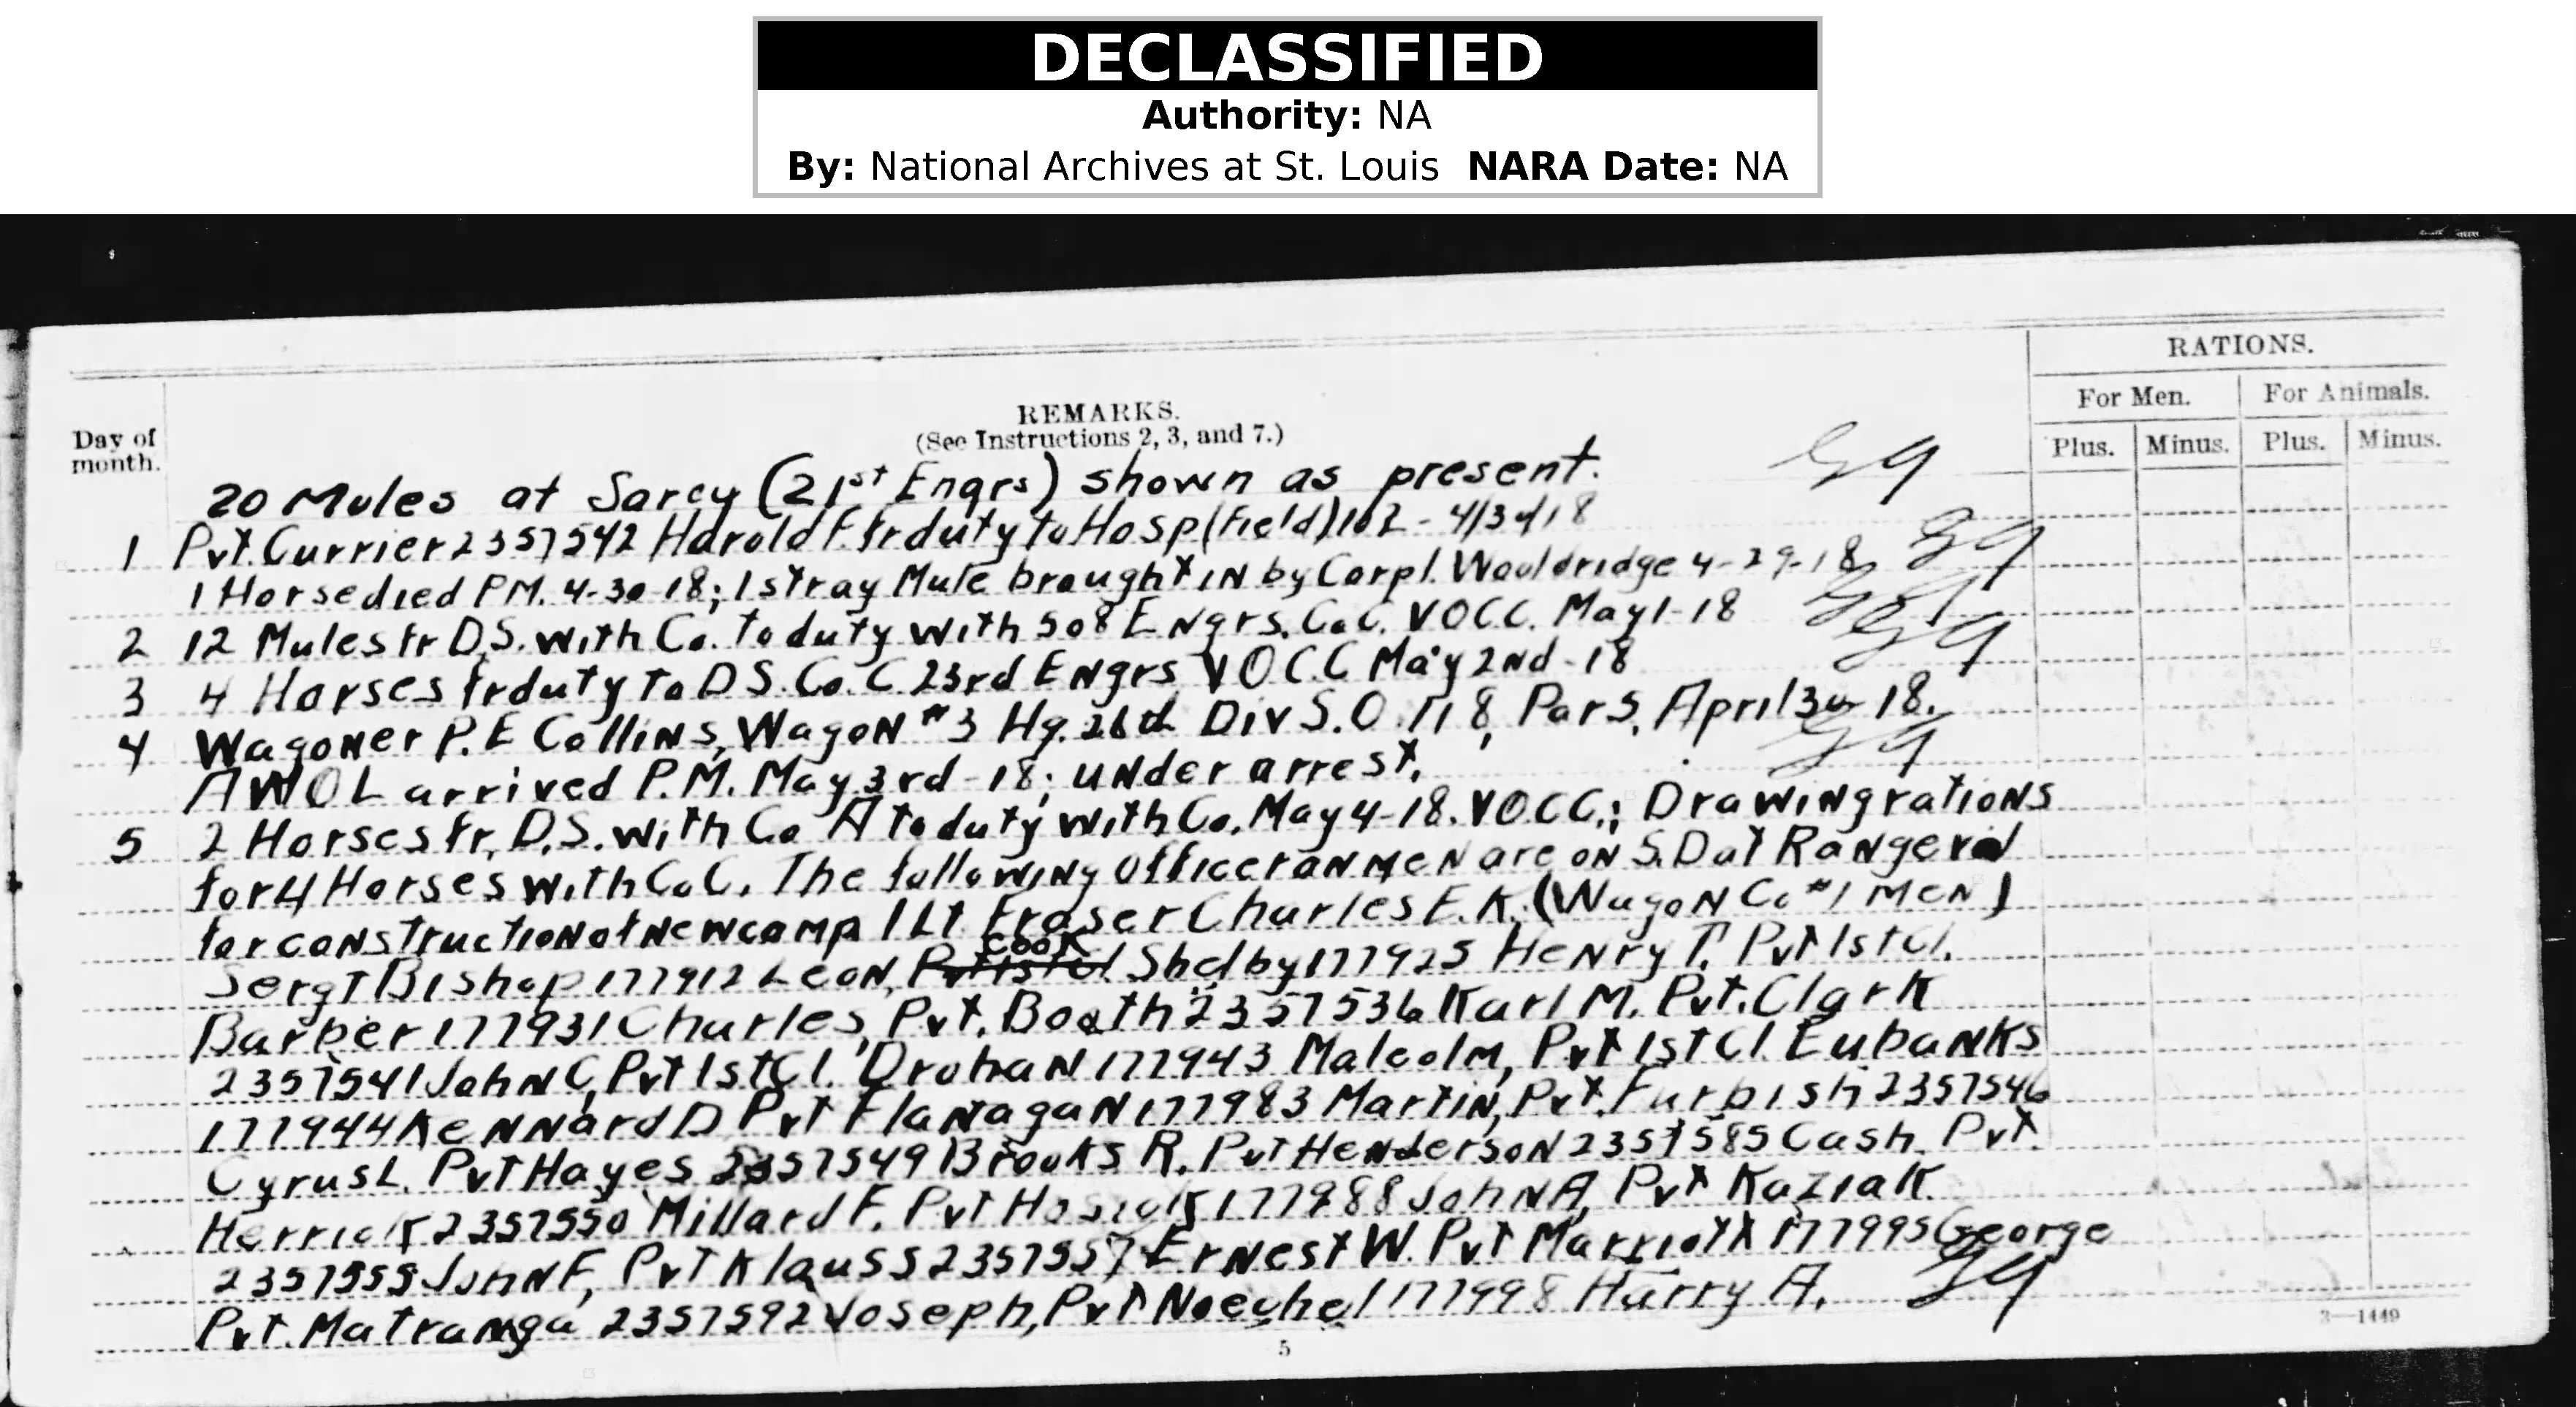 DECLASSIFIED
Authority: NA
By: National Archives at St. Louis NARA Date: NA
RATIONS.
For Men. For Animals.
Plus. Minus. Plus. Minus.
Day of month.
REMARKS.
(See Instructions 2, 3, and 7.)
20 Mules at Sarcy (21st Engrs) shown as present.
1 Pvt. Currier 2357542 Harold F. fr duty to Hosp (Field) 102 - 4/30/18
1 Horse died PM. 4-30-18; 1 stray Mule brought in by Corpl. Wooldridge 4-29-18
2 12 Mules fr D.S. with Co. to duty with 508 Engrs. Co. C. VOCC. May 1-18
3 4 Horses fr duty to D S. Co. C 23rd Engrs VOCC May 2nd-18
4 Wagoner P. E Collins, Wagon #3 Hq. 26th Div S.O. 118, Par 5, April 30-18.
AWOL arrived P.M. May 3rd-18; under arrest.
5 2 Horses fr. D.S. with Co A to duty with Co. May 4-18. VOCC.; Drawing rations
for 4 Horses with Co C. The following Officer an Men are on S.D at Rangeval
for construction of New camp 1 Lt Fraser Charles E. K. (Wagon Co #1 Men)
Sergt Bishop 177912 Leon, Pvt 1st Cl Cook Shelby 177925 Henry T. Pvt 1st Cl.
Barber 177931 Charles, Pvt. Booth 2357536 Karl M. Pvt. Clark
2357541 John C, Pvt 1st Cl. Drohan 177943 Malcolm, Pvt 1st Cl. Eubanks
177944 Kennard D Pvt Flanagan 177983 Martin, Pvt. Furbish 2357546
Cyrus L. Pvt Hayes 2357549 Brooks R. Pvt Henderson 2357585 Cash. Pvt.
Herrick 2357550 Millard F. Pvt 177988 John A, Pvt Kaziak
2357555 John F, Pvt Klauss 2357557 Ernest W. Pvt Marriott 177995 George
Pvt. Matranga 2357592 Joseph, Pvt Noechel 177998 Harry A.
3—1449
5